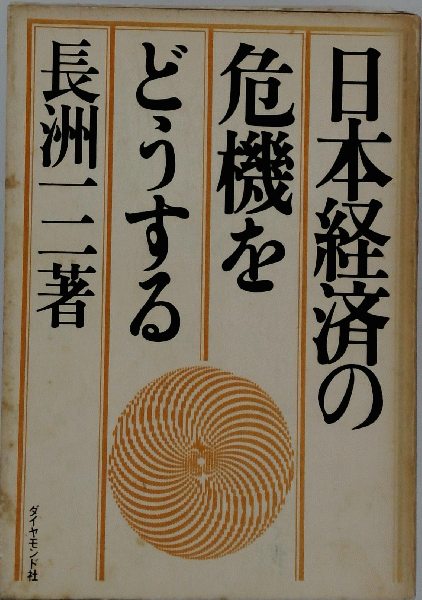 日本経済の
危機を
どうする
長洲一二著
ダイヤモンド社